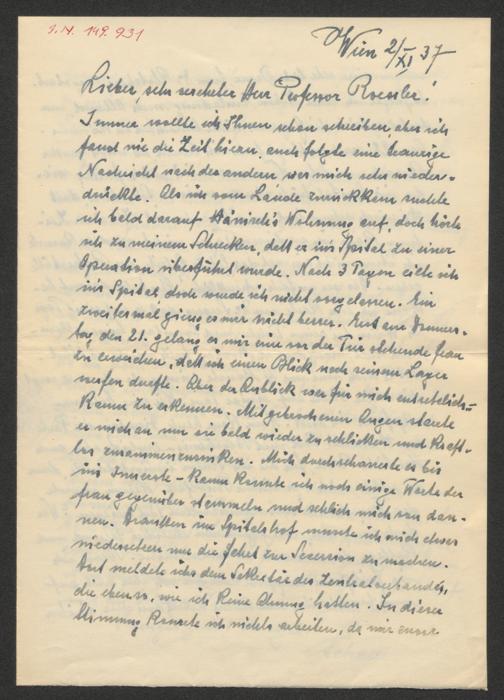 I.N. 149.931
Wien 2/XI 37
Lieber, sehr verehrter Herr Professor Roessler!
Immer wollte ich Ihnen schon schreiben, aber ich
fand nie die Zeit hiezu, auch folgte eine traurige
Nachricht nach der andern was mich sehr nieder-
drückte. Als ich vom Lande zurückkam suchte
ich bald darauf Hänisch's Wohnung auf, doch hörte
ich zu meinem Schrecken, daß er ins Spital zu einer
Operation überführt wurde. Nach 3 Tagen eilte ich
ins Spital, doch wurde ich nicht vorgelassen. Ein
zweitesmal gieng es mir nicht besser. Erst am Donners-
tag den 21. gelang es mir eine vor der Tür stehende Frau
zu erweichen, daß ich einen Blick nach seinem Lager
werfen durfte. Aber der Anblick war für mich entsetzlich –
Kaum zu erkennen. Mit gebrochenen Augen starrte
er mich an um sie bald wieder zu schließen und Kraft-
los zusammenzusinken. Mich durchschauerte es bis
ins Innerste – Kaum konnte ich noch einige Worte der
Frau gegenüber stammeln und schlich mich von dan-
nen. Draußen im Spitalshof musste ich mich etwas
niedersetzen um die Fahrt zur Secession zu machen.
Dort meldete ichs dem Sekretär des Zentralverbandes,
die ebenso, wie ich keine Ahnung hatten. In dieser
Stimmung konnte ich nichts arbeiten, da mir